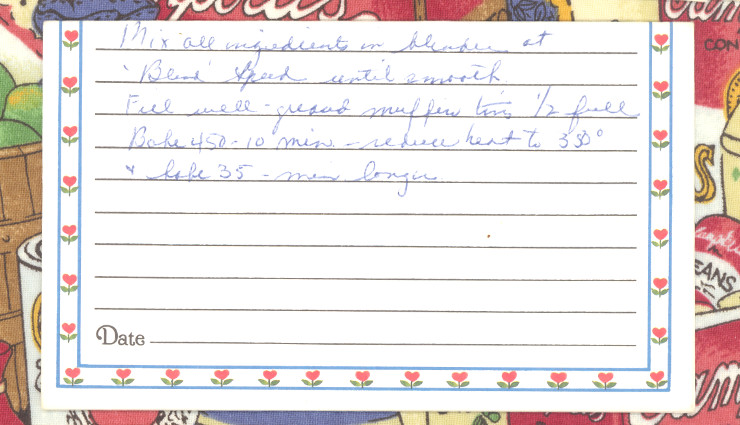 Mix all ingredients in blender at
"Blend" Speed until smooth.
Fill well-greased muffin tins 1/2 full
Bake 450-10 min. - reduce heat to 350°
& bake 35 - min longer
Date
CON
EANS